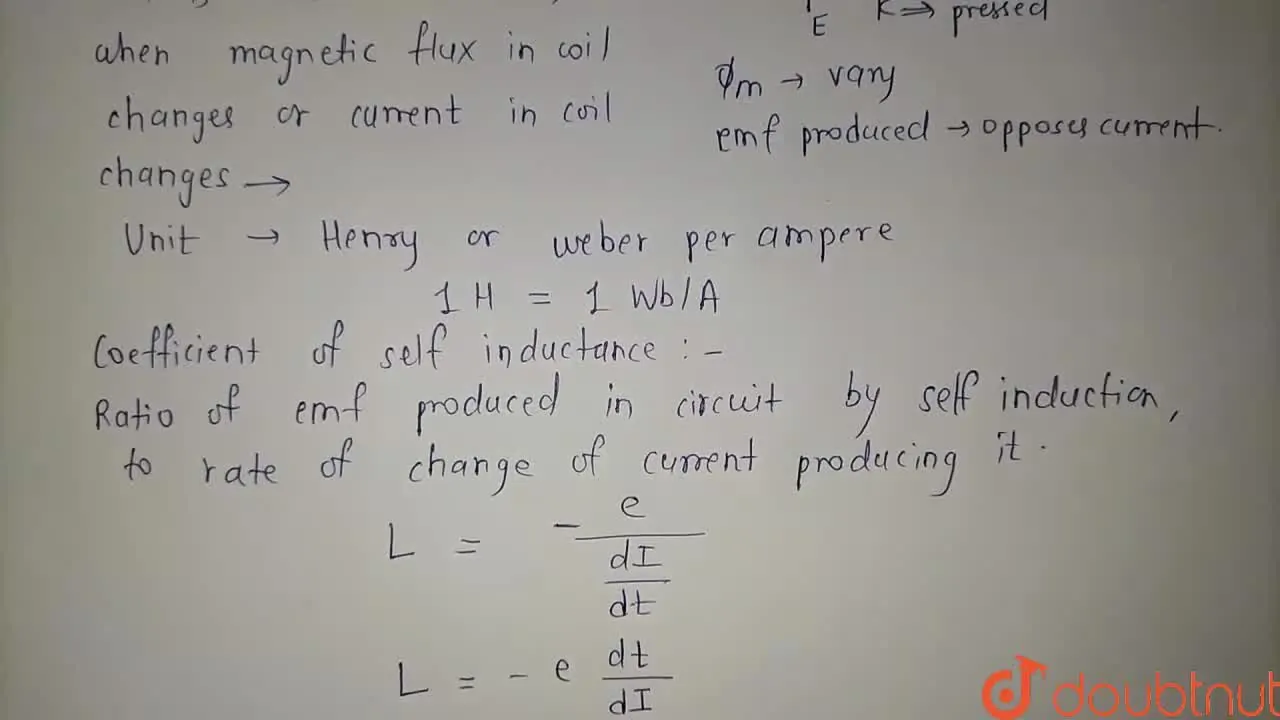 E K⇒ pressed
when magnetic flux in coil
changes or current in coil
changes →
ϕm → vary
emf produced → opposes current.
Unit → Henry or weber per ampere
1 H = 1 Wb/A
Coefficient of self inductance : -
Ratio of emf produced in circuit by self induction,
to rate of change of current producing it.
L = - e
dI
dt
L = - e dt
dI
doubtnut